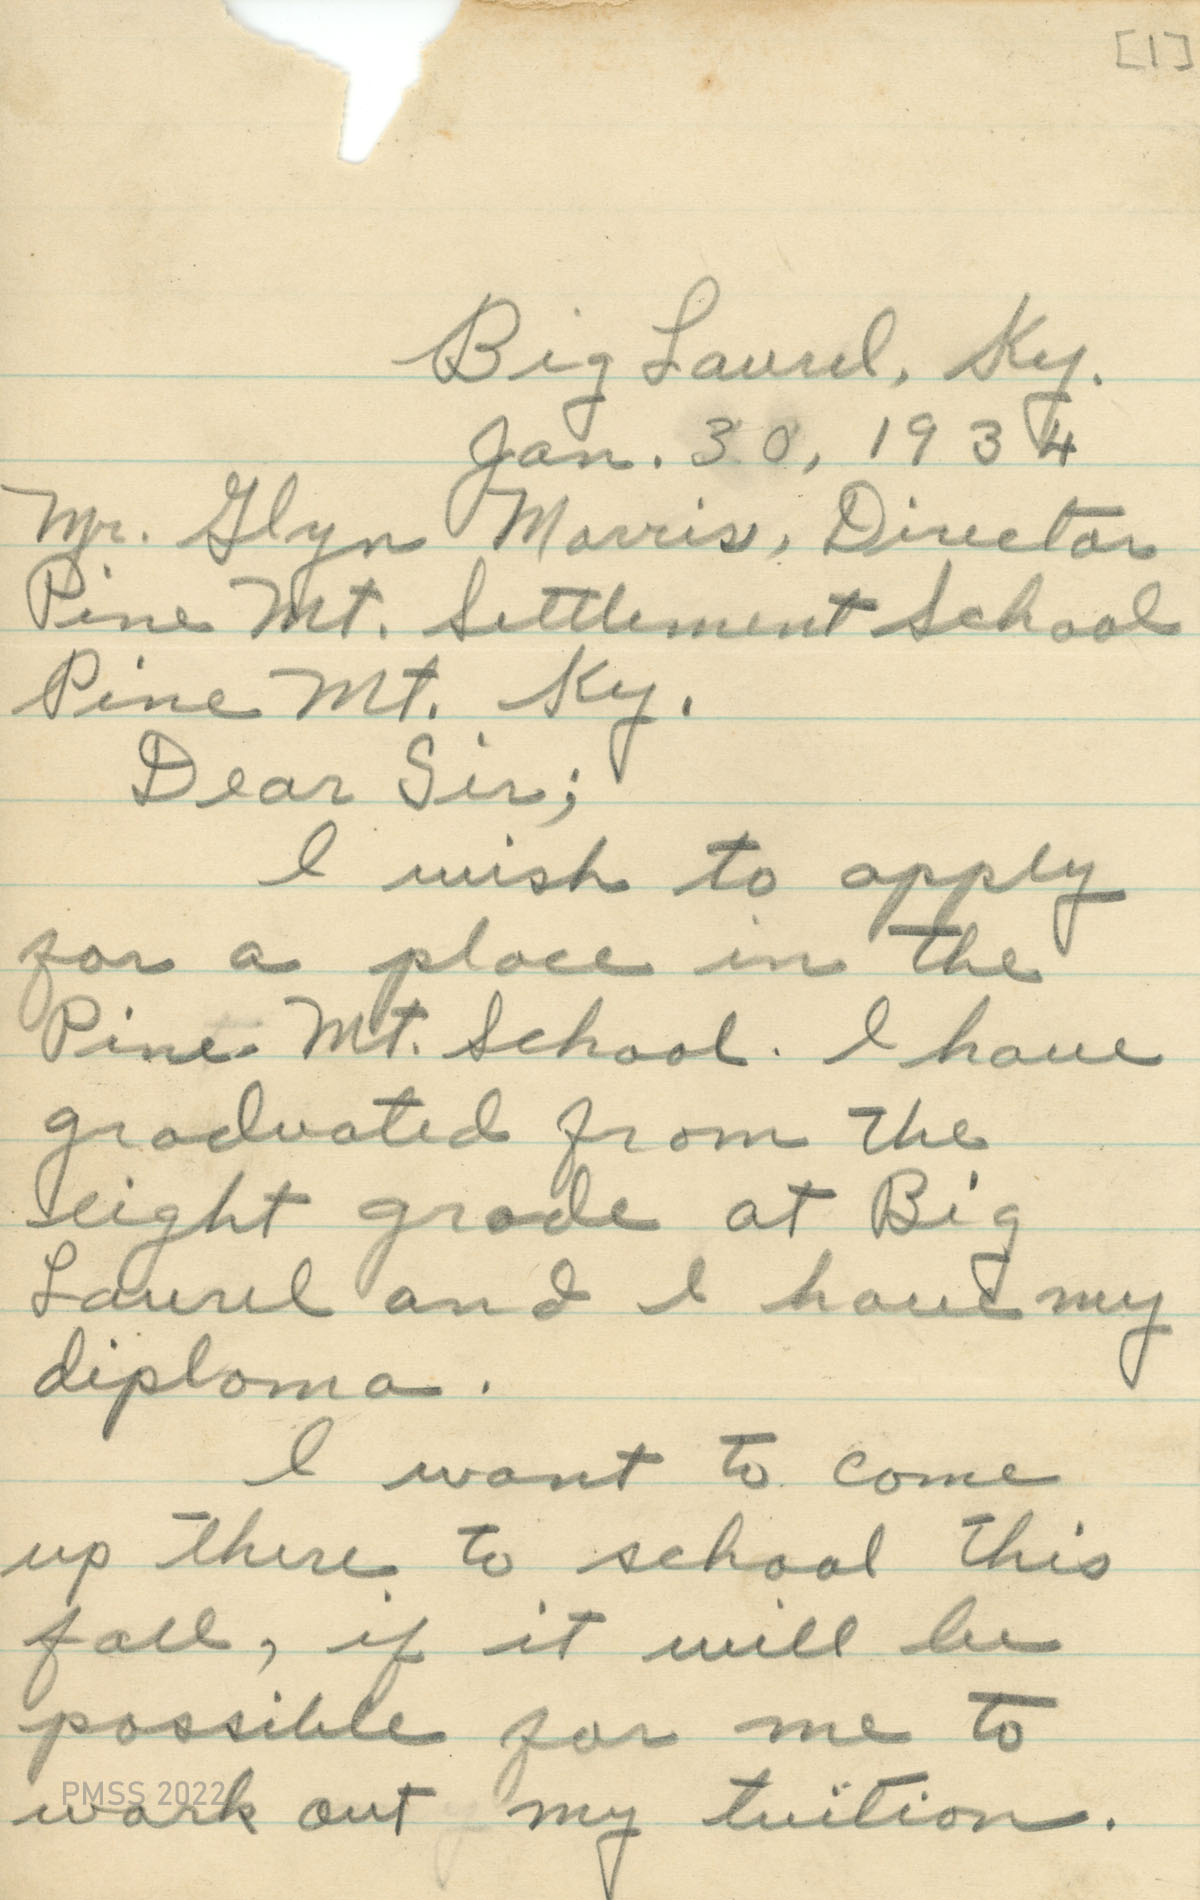 [1]
Big Laurel, Ky.
Jan. 30, 1934
Mr. Glyn Morris, Director
Pine Mt. Settlement School
Pine Mt. Ky.
Dear Sir;
I wish to apply
for a place in the
Pine Mt. School. I have
graduated from the
eight grade at Big
Laurel and I have my
diploma.
I want to come
up there to school this
fall, if it will be
possible for me to
work out my tuition.
PMSS 2022